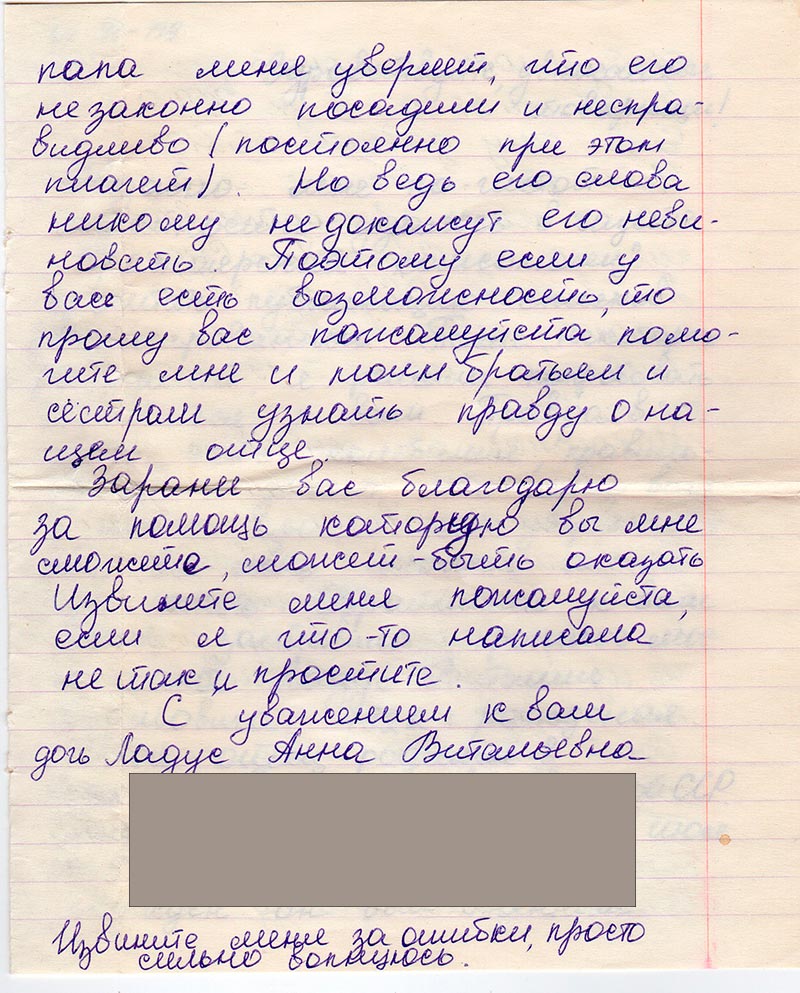 папа меня уверяет, что его
незаконно посадили и неспра-
видливо (постоянно при этом
плачет). Но ведь его слова
никому недокажут его неви-
новсть. Поэтому если у
вас есть возможность, то
прошу вас пожалуйста помо-
гите мне и моим братьям и
сёстрам узнать правду о на-
щем отце.
Зарание вас благодарю
за помощь которую вы мне
сможите, может-быть оказать
Извините меня пожалуйста,
если я что-то написала
не так и простите.
С уважением к вам
дочь Ладус Анна Витальевна
Извините меня за ошибки, просто
сильно волнуюсь.